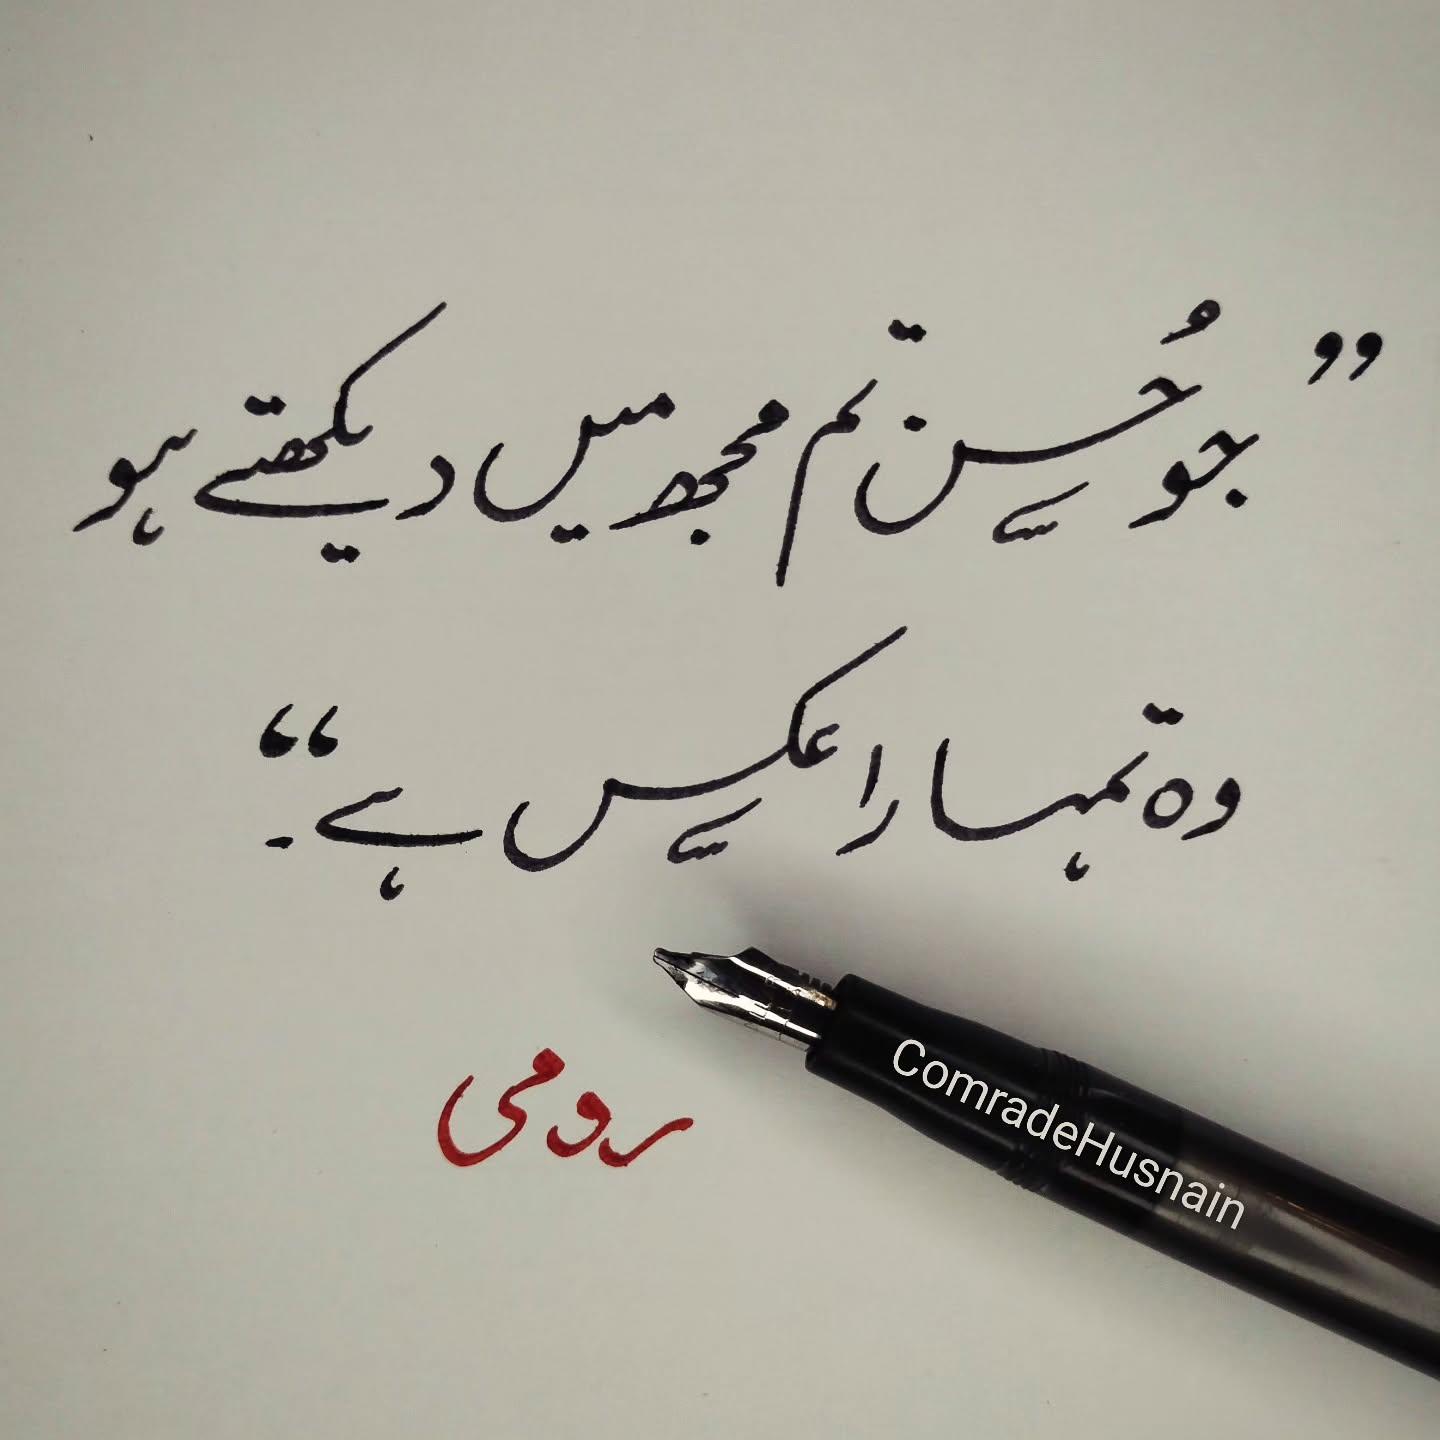 ”جو حُسن تم مجھ میں دیکھتے ہو
وہ تمہارا عکس ہے۔“
رومی
ComradeHusnain